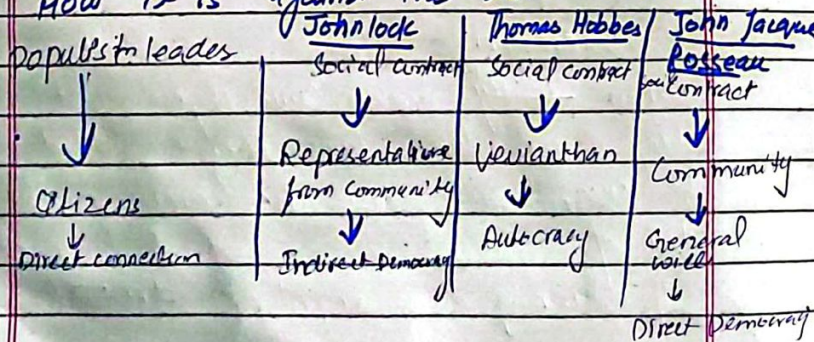 How it is against the
populism leades
↓
Citizens
↓
Direct connection
John lock
Social contract
↓
Representative
from community
↓
Indirect Democracy
Thomas Hobbes
Social contract
↓
Levianthan
↓
Autocracy
John Jacque
Rosseau
Social contract
↓
Community
↓
General
will
↓
Direct Democracy